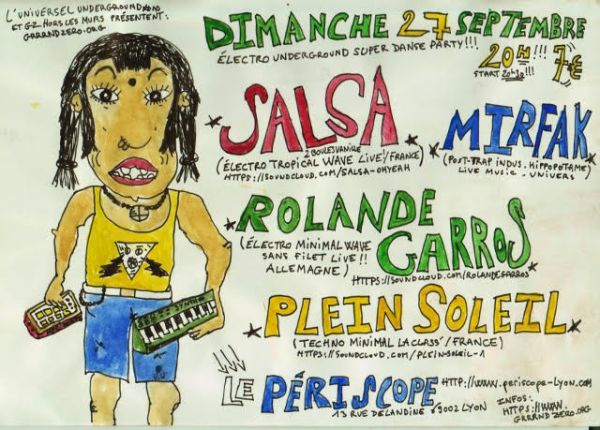 L'UNIVERSEL UNDERGROUND
ET GZ HORS LES MURS PRÉSENTENT:
GRRRNDZERO.ORG
DIMANCHE 27 SEPTEMBRE
ÉLECTRO UNDERGROUND SUPER DANSE PARTY!!!
20H!!! 7€
START 20H30!!!
SALSA
2 BOULES VANILLE
(ÉLECTRO TROPICAL WAVE LIVE'/FRANCE)
HTTPS://SOUNDCLOUD.COM/SALSA-OHYEAH
MIRFAK
(POST-TRAP INDUS. HIPPOPOTAME/
LIVE MUSIC. UNIVERS)
ROLANDE
GARROS
(ÉLECTRO MINIMAL WAVE
SANS FILET LIVE!!
ALLEMAGNE)
HTTPS://SOUNDCLOUD.COM/ROLANDEGARROS
PLEIN SOLEIL
(TECHNO MINIMAL LA CLASS'/FRANCE)
HTTPS://SOUNDCLOUD.COM/PLEIN-SOLEIL-1
LE PÉRISCOPE
HTTP://WWW.PERISCOPE-LYON.COM
13 RUE DELANDINE 69002 LYON
INFOS:
HTTPS://WWW.
GRRRNDZERO.ORG